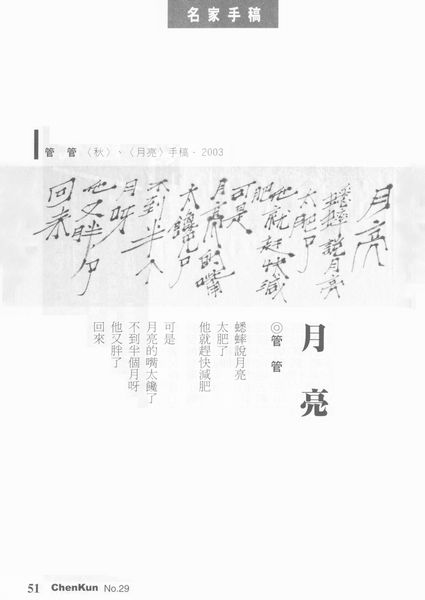 名家手稿
管 管〈秋〉、〈月亮〉手稿‧2003
月亮
蟋蟀說月亮
太肥了
他就趕快減
肥
可是
月亮的嘴
太饞了
不到半个
月呀
他又胖了
回來
月亮
◎管 管
蟋蟀說月亮
太肥了
他就趕快減肥
可是
月亮的嘴太饞了
不到半個月呀
他又胖了
回來
51 ChenKun No.29